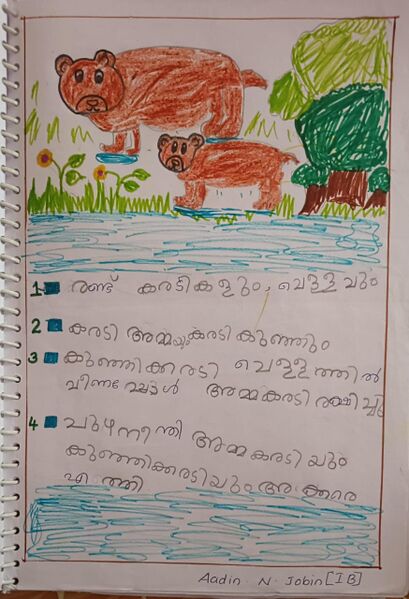 1 രണ്ട് കരടികളും, വെള്ളവും
2 കരടി അമ്മയും കരടി കുഞ്ഞും
3 കുഞ്ഞിക്കരടി വെള്ളത്തിൽ
വീണപ്പോൾ അമ്മക്കരടി രക്ഷിച്ചു
4 പുഴനീന്തി അമ്മകരടിയും
കുഞ്ഞിക്കരടിയും അക്കരെ
എത്തി
Aadin. N. Jobin [I B]